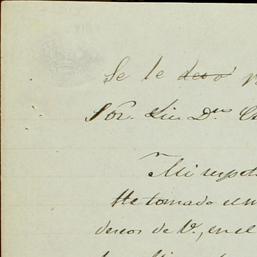 Se le
Sor. Lic. Dn.
Mi respet
He tomado el m
deseos de V., en el